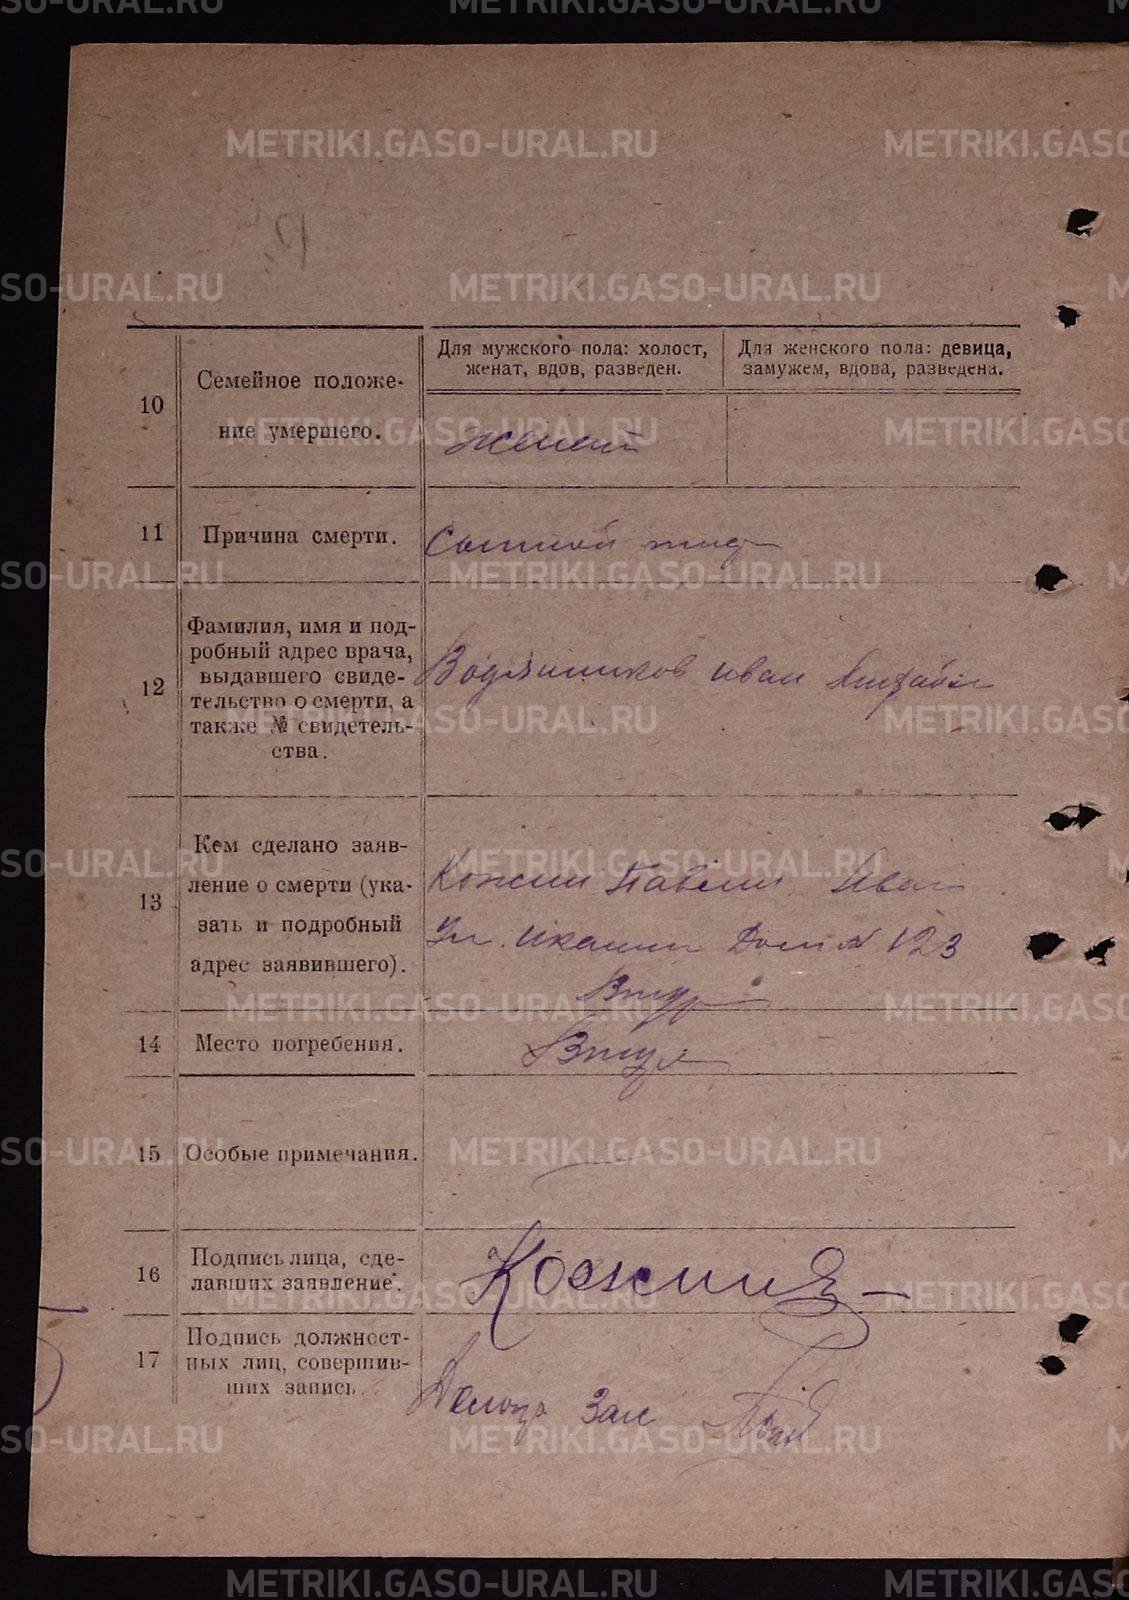 METRIKI.GASO-URAL.RU
Для мужского пола: холост,
женат, вдов, разведен.
Для женского пола: девица,
замужем, вдова, разведена.
10
Семейное положе-
ние умершего.
женат
11
Причина смерти.
Сыпной тиф
12
Фамилия, имя и под-
робный адрес врача,
выдавшего свиде-
тельство о смерти, а
также № свидетель-
ства.
Иван
13
Кем сделано заяв-
ление о смерти (ука-
зать и подробный
адрес заявившего).
Кожин Павел Иван
Ул. Иканин Дом № 123
Втур
14
Место погребения.
Втур
15
Особые примечания.
16
Подпись лица, сде-
лавших заявление.
Кожин
17
Подпись должност-
ных лиц, совершив-
ших запись.